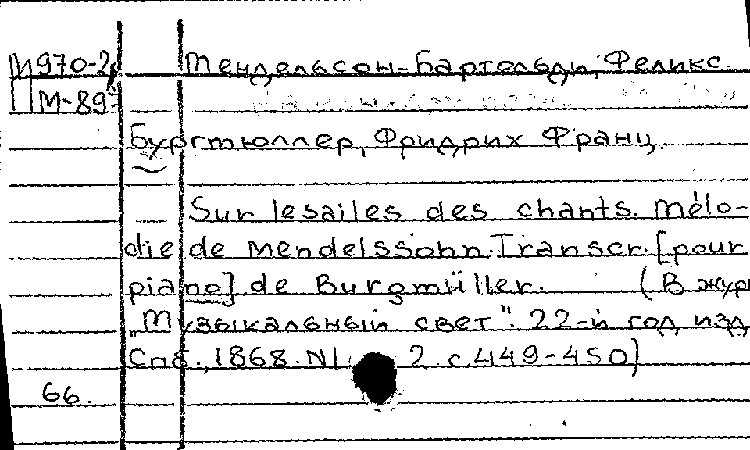 М970-2 Мендельсон-Бартольди, Феликс.
М-897
Бургмюллер, Фридрих Франц.
Sur les ailes des chants. Mélo-
die de Mendelssohn. Transcr. [pour
piano] de Burgmüller. (В журн
„Музыкальный свет". 22-й год изд
Спб., 1868. N1 2 с. 449-450)
66.